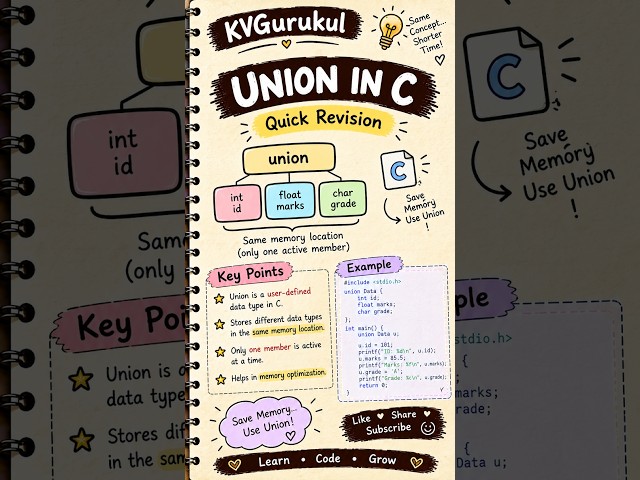 KVGurukul
Same
Concept...
Shorter
Time!
UNION IN C
Quick Revision
union
int
id
float
marks
char
grade
C
Save
Memory
Use Union
!
Same memory location
(only one active member)
Key Points
Union is a user-defined
data type in C.
Stores different data types
in the same memory location.
Only one member is active
at a time.
Helps in memory optimization.
Example
#include <stdio.h>
union Data {
int id;
float marks;
char grade;
};
int main() {
union Data u;
u.id = 101;
printf("ID: %d\n", u.id);
u.marks = 85.5;
printf("Marks: %f\n", u.marks);
u.grade = 'A';
printf("Grade: %c\n", u.grade);
return 0;
}
Save Memory...
Use Union!
Like Share
Subscribe
Learn • Code • Grow
int
id
Same
(only
Key Poi
Union is a
data type
Stores dif
in the sam
C
Save
Memory
Use Union
!
ple
stdio.h>
marks;
grade;
{
Data u;